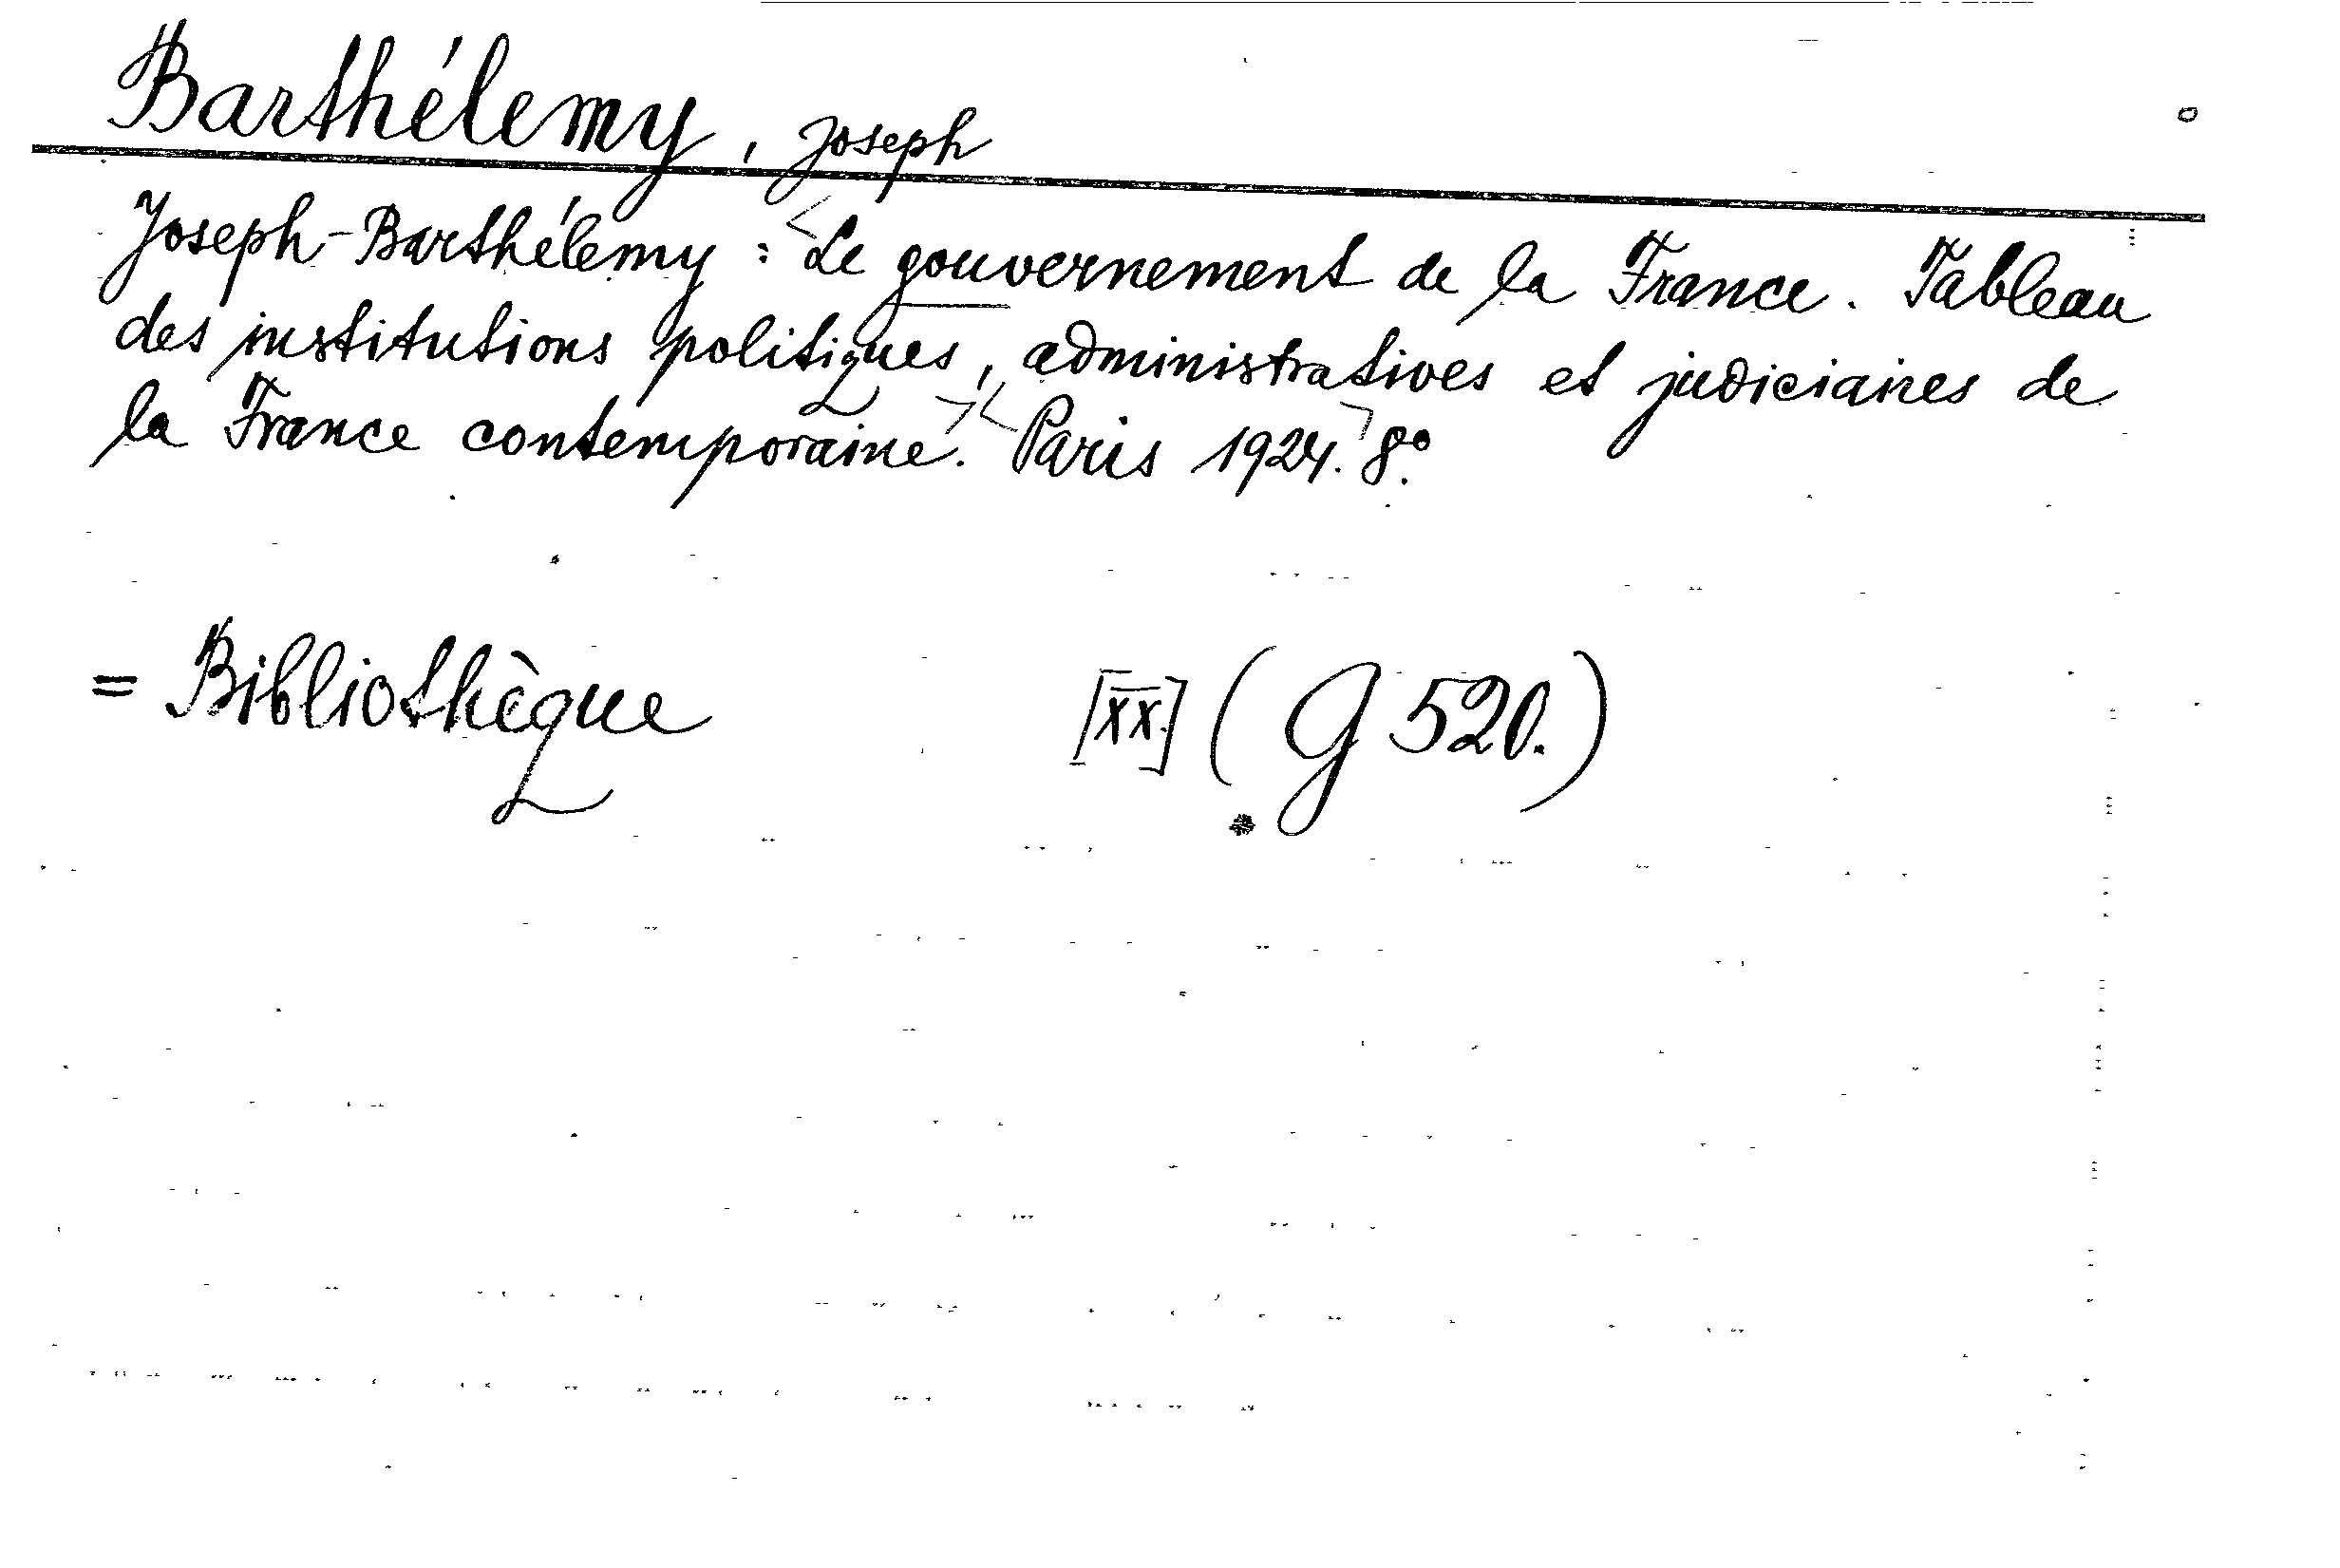 Barthélemy, Joseph
Joseph-Barthélemy: <Le gouvernement de la France. Tableau
des institutions politiques, administratives et judiciaires de
la France contemporaine.> <Paris 1924.> 8°.
= Bibliothèque [XX.] (G 520.)